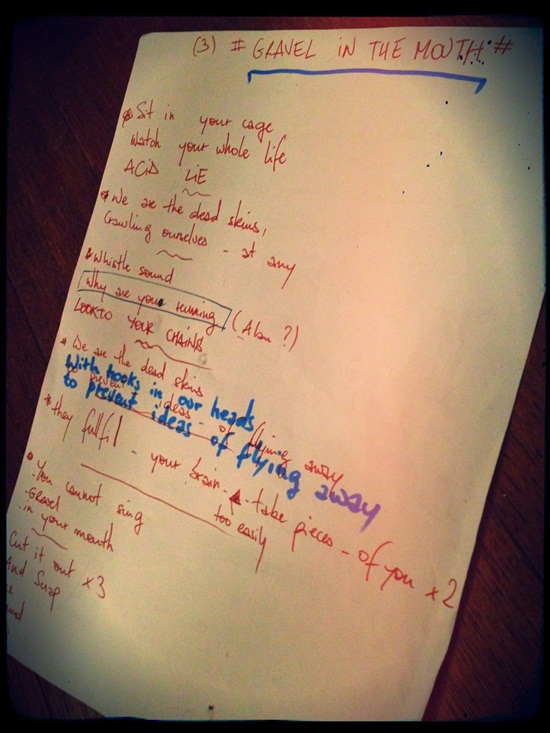 (3) # GRAVEL IN THE MOUTH #
Sit in your cage
Watch your whole life
ACID LIE
We are the dead skins,
Crawling ourselves - at any
Whistle sound
Why are you running (Alan ?)
LOOK TO YOUR CHAINS
We are the dead skins
With hooks in our heads
to prevent ideas of flying away
ideas - of flying away
they fullfil - your brain - take pieces - of you x2
too easily
You cannot sing
Gravel
in your mouth
Cut it out x3
And Snap